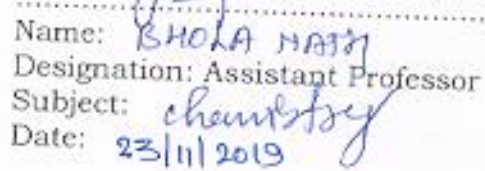 Name: BHOLA NATH
Designation: Assistant Professor
Subject: chemistry
Date: 23/11/2019